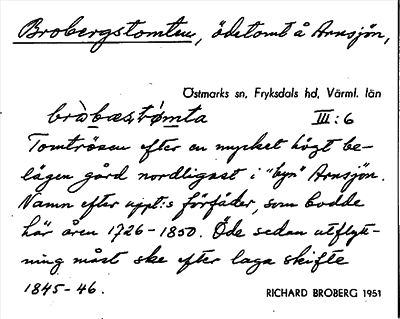 Brobergstomten, ödetomt å Arnsjön,
Östmarks sn, Fryksdals hd, Värml. län
III: 6
Tomtrösen efter en mycket högt be-
lägen gård nordligast i "byn" Arnsjön.
Namn efter uppt:s förfäder, som bodde
här åren 1726-1850. Öde sedan utflytt-
ning måst ske efter laga skifte
1845-46.
RICHARD BROBERG 1951